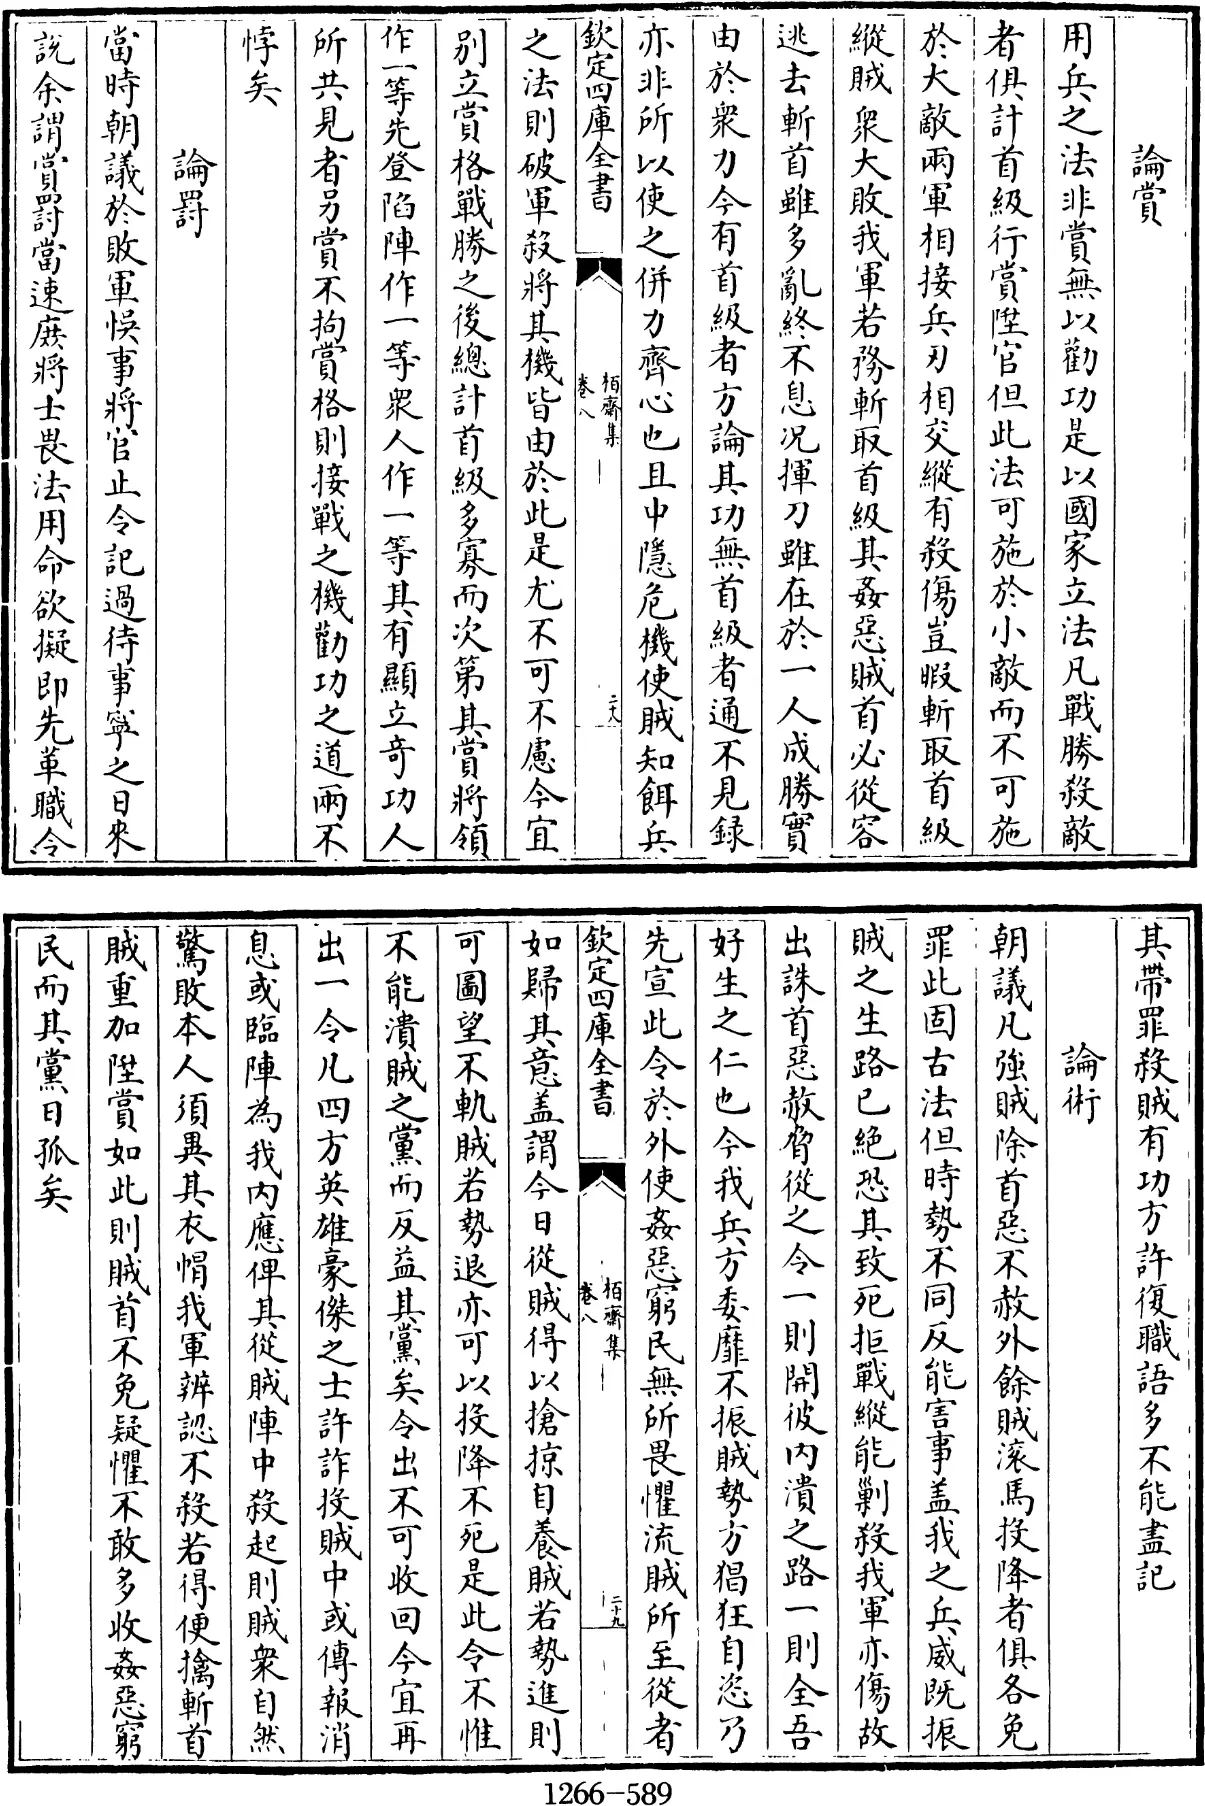 論賞
用兵之法非賞無以勸功是以國家立法凡戰勝殺敵
者俱計首級行賞陞官但此法可施於小敵而不可施
於大敵兩軍相接兵刃相交縱有殺傷豈暇斬取首級
縱賊衆大敗我軍若務斬取首級其姦惡賊首必從容
逃去斬首雖多亂終不息况揮刀雖在於一人成勝實
由於衆力今有首級者方論其功無首級者通不見録
亦非所以使之併力齊心也且中隱危機使賊知餌兵
欽定四庫全書
栢齋集
卷八
二十八
之法則破軍殺將其機皆由於此是尤不可不慮今宜
别立賞格戰勝之後總計首級多寡而次第其賞將領
作一等先登陷陣作一等衆人作一等其有顯立竒功人
所共見者另賞不拘賞格則接戰之機勸功之道兩不
悖矣
論罰
當時朝議於敗軍悞事將官止令記過待事寧之日來
說余謂賞罸當速庻將士畏法用命欲擬即先革職令
其帶罪殺賊有功方許復職語多不能盡記
論術
朝議凡強賊除首惡不赦外餘賊滚馬投降者俱各免
罪此固古法但時勢不同反能害事盖我之兵威既振
賊之生路已絶恐其致死拒戰縱能剿殺我軍亦傷故
出誅首惡赦脅從之令一則開彼内潰之路一則全吾
好生之仁也今我兵方委靡不振賊勢方猖狂自恣乃
先宣此令於外使姦惡窮民無所畏懼流賊所至從者
欽定四庫全書
栢齋集
卷八
二十九
如歸其意盖謂今日從賊得以搶掠自養賊若勢進則
可圖望不軌賊若勢退亦可以投降不死是此令不惟
不能潰賊之黨而反益其黨矣令出不可收回今宜再
出一令凡四方英雄豪傑之士許詐投賊中或傳報消
息或臨陣為我内應俾其從賊陣中殺起則賊衆自然
驚敗本人須異其衣帽我軍辨認不殺若得便擒斬首
賊重加陞賞如此則賊首不免疑懼不敢多收姦惡窮
民而其黨日孤矣
1266-589